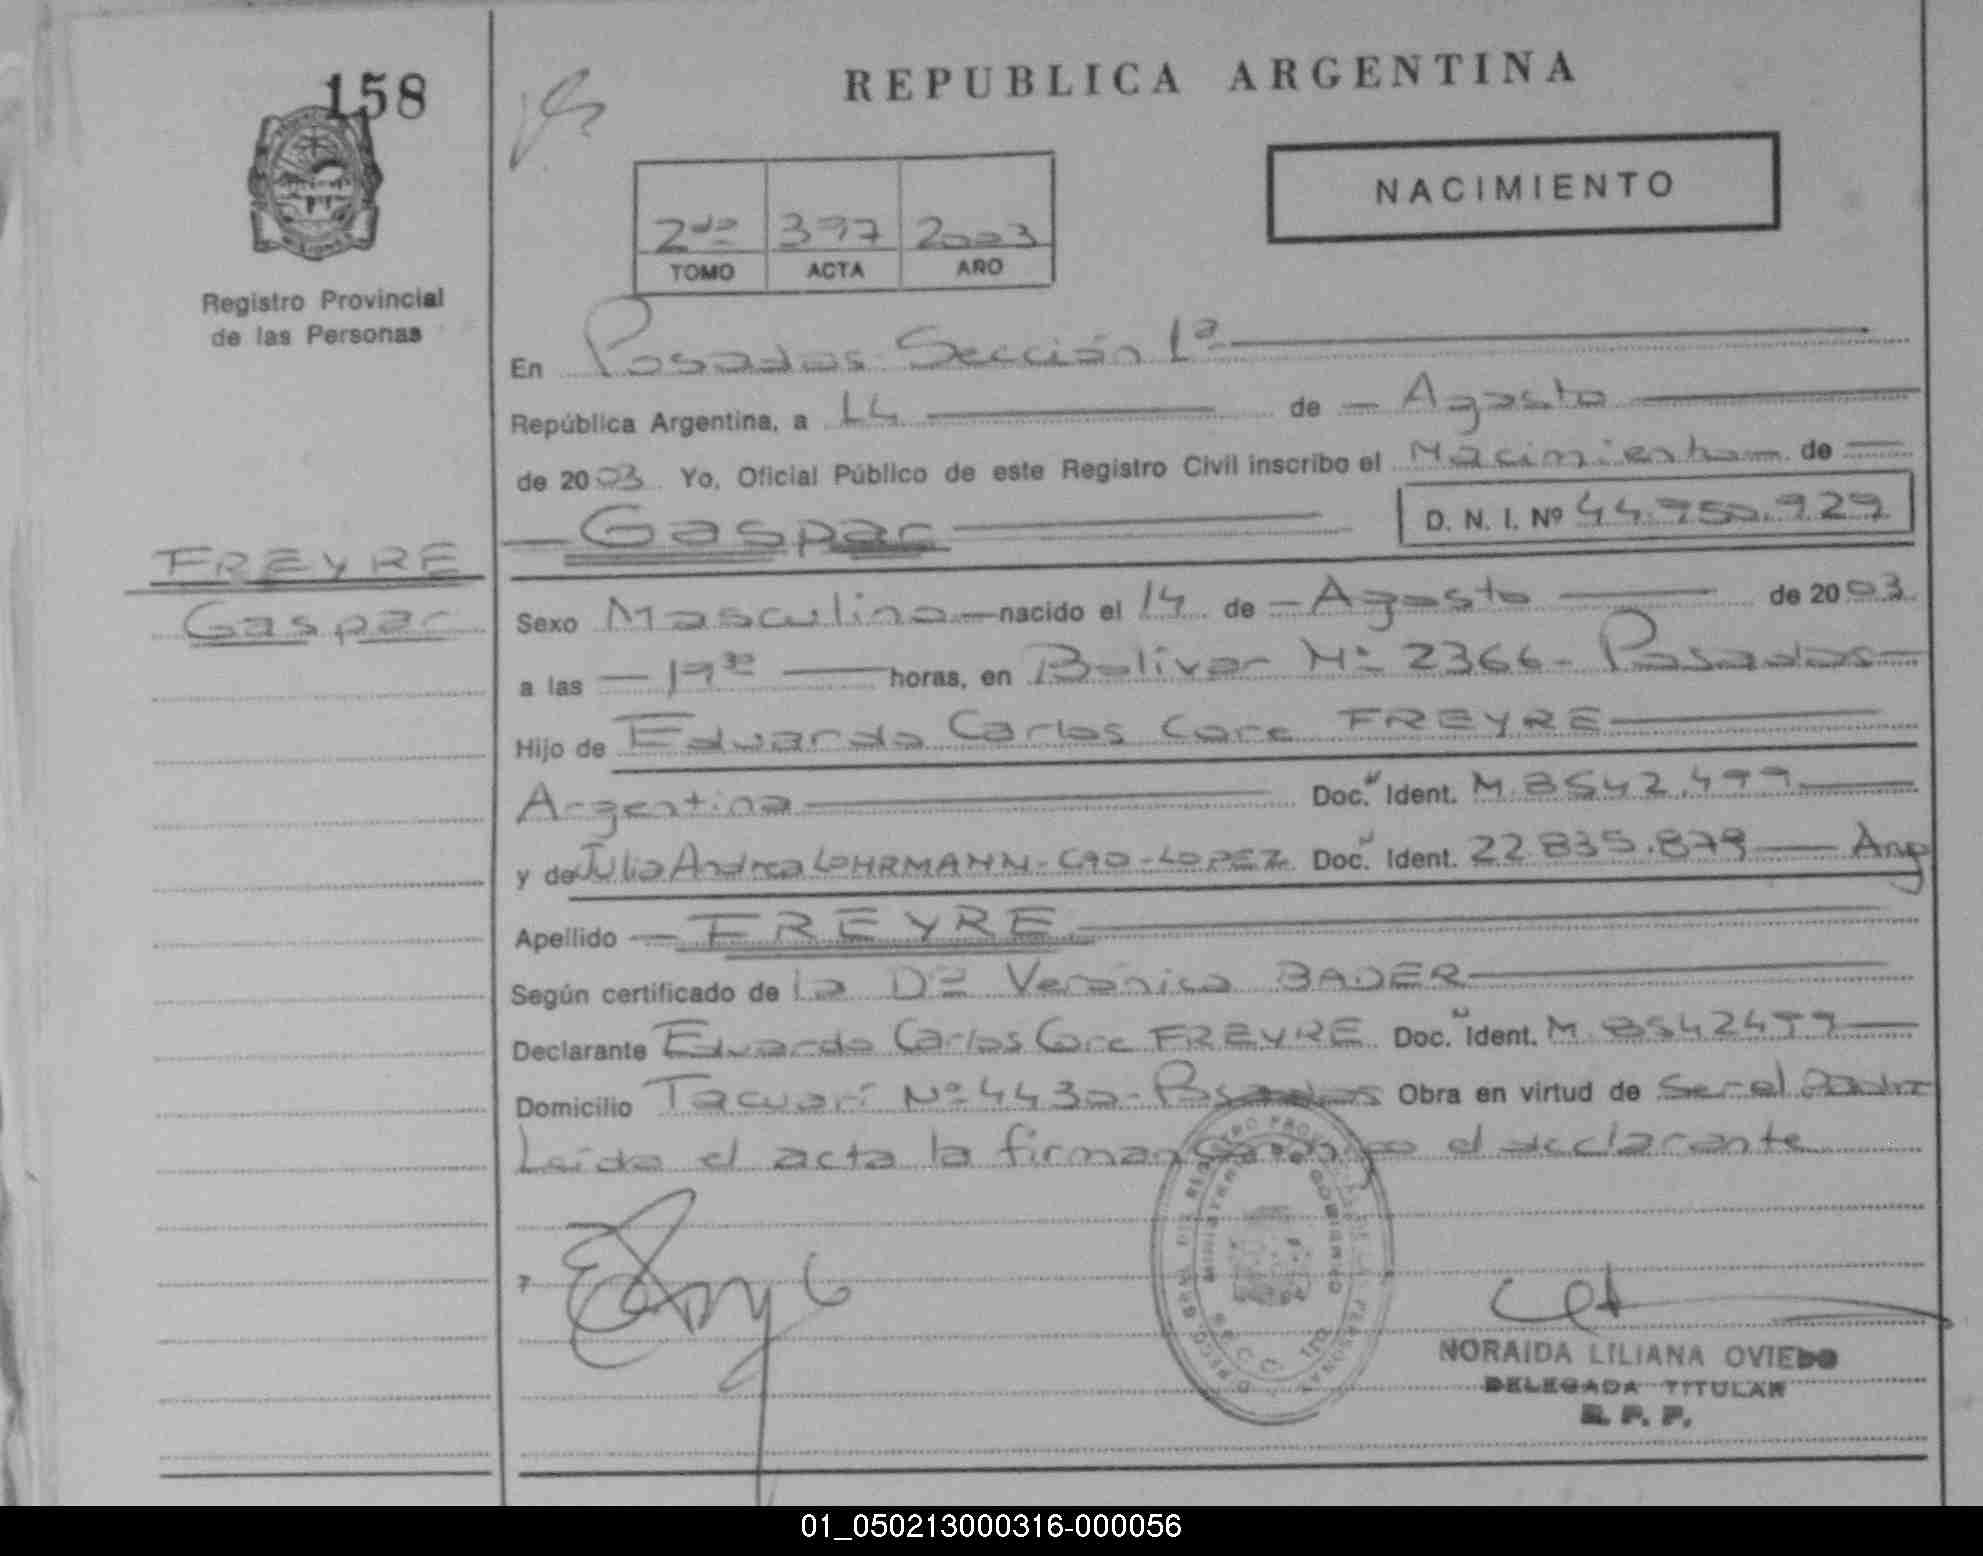 158
REPUBLICA ARGENTINA
NACIMIENTO
2do 397 2003
TOMO ACTA AÑO
Registro Provincial
de las Personas
En Posadas Sección 1ª
República Argentina, a 14 de Agosto
de 2003 Yo, Oficial Público de este Registro Civil inscribo el Nacimiento de
Gaspar D. N. I. Nº 44.950.929
FREYRE
Gaspar
Sexo Masculino nacido el 14 de Agosto de 2003
a las 19 30 horas, en Bolivar Nº 2366 - Posadas
Hijo de Eduardo Carlos Core FREYRE
Argentina Doc. Ident. M. 8542.499
y de Julia Andrea LOHRMANN - CAO - LOPEZ Doc. Ident. 22835.879 Arg
Apellido FREYRE
Según certificado de la Dra Verónica BADER
Declarante Eduardo Carlos Core FREYRE Doc. Ident. M. 8542499
Domicilio Tacuarí Nº 4430 - Posadas Obra en virtud de Ser el Padre
Leida el acta la firman conmigo el declarante
NORAIDA LILIANA OVIEDO
DELEGADA TITULAR
R. P. P.
01_050213000316-000056